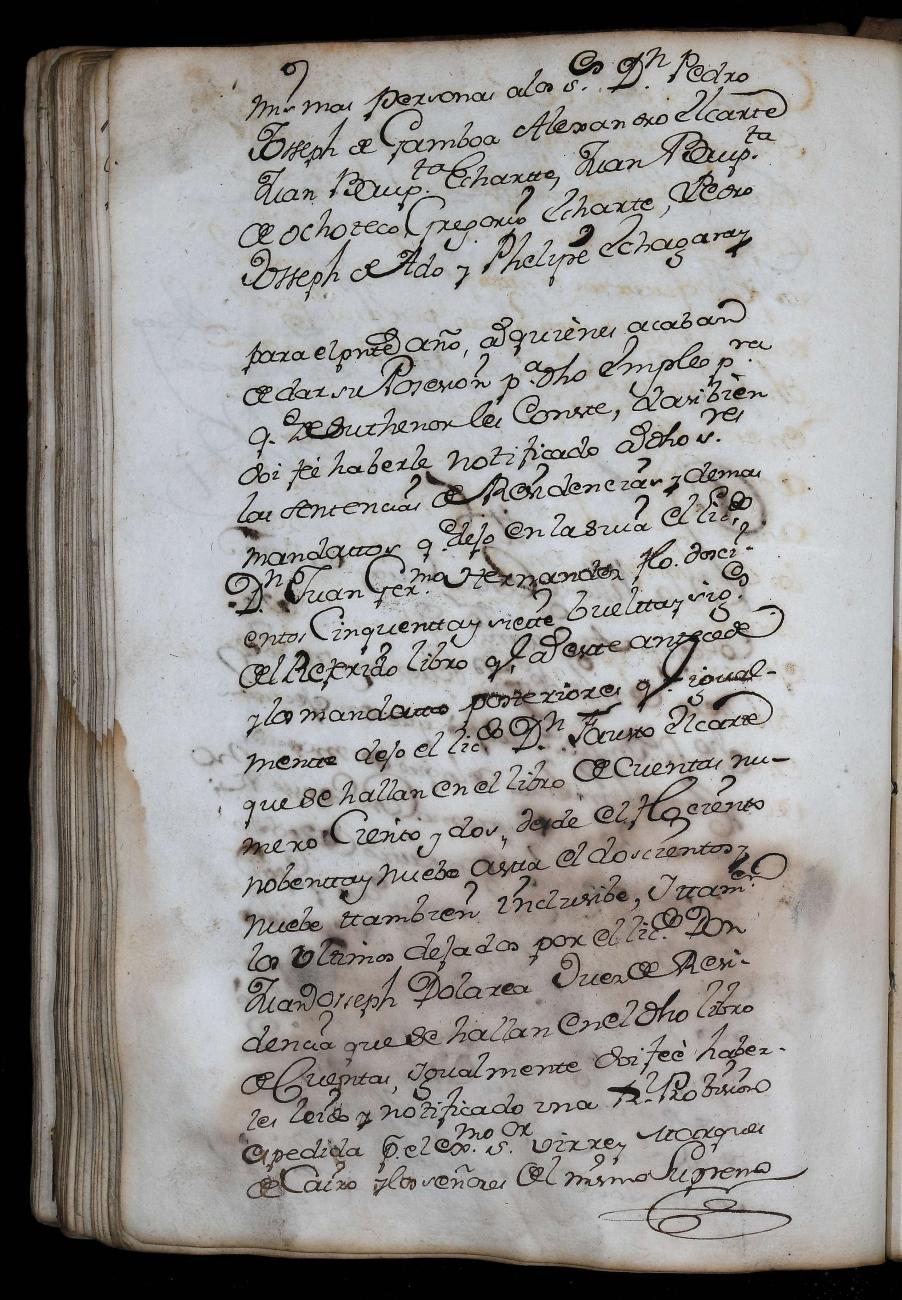 mismas personas alos S.es Dn Pedro
Joseph de Gamboa Alexandro Elcarte
Juan Baup.ta Echarte, Juan Baup.ta
de ochoteco Gregorio Echarte, Pedro
Joseph de Ado y Phelipe Echagaray
para el pntte año, a quienes acaban
de dar su Posesion p.a dho Empleo p.ra
q.e de su thenor les Conste, I asi bien
doi feé haberle notificado a dhos s.res
las sentencias de Residencias y demas
mandattos q.e dejo en la suia el lic.do
Dn Juan Ger.mo Hernandez, flo. dosci-
entos Cinquenttay siette bueltta y sig.e
del Referido libro q.e a este antecede
y los mandatos posteriores q.e igual-
mente dejo el lic.do Dn Fausto Elcarte
que se hallan en el libro de Cuentas nu-
mero Ciento y dos, desde el flo ciento
nobenttay nuebe asta el doscientos y
nuebe ttambien inclusibe, I ttam.en
los ultimos dejados por el lic.do Don
Juan Joseph Dolarea Juez de Resi-
dencia que se hallan en el dho libro
de Cuentas, igualmente doi feè haber-
les leido y notificado una R.l Probision
espedida p.r el ex.mo S.or Virrey Marques
de Cairo y los señores del mismo Supremo